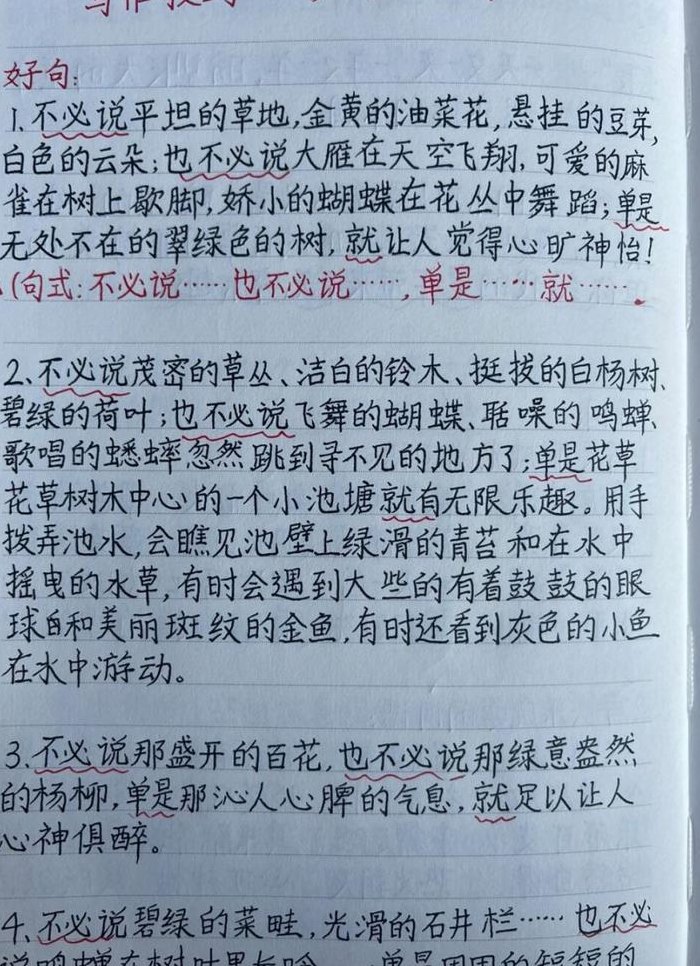 好句:
1.不必说平坦的草地,金黄的油菜花,悬挂的豆芽,
白色的云朵;也不必说大雁在天空飞翔,可爱的麻
雀在树上歇脚,娇小的蝴蝶在花丛中舞蹈;单是
无处不在的翠绿色的树,就让人觉得心旷神怡!
(句式:不必说……也不必说……,单是……就……。
2、不必说茂密的草丛、洁白的铃木、挺拔的白杨树、
碧绿的荷叶;也不必说飞舞的蝴蝶、聒噪的鸣蝉、
歌唱的蟋蟀忽然跳到寻不见的地方了;单是花草
花草树木中心的一个小池塘就有无限乐趣。用手
拨弄池水,会瞧见池壁上绿滑的青苔和在水中
摇曳的水草,有时会遇到大些的有着鼓鼓的眼
球和美丽斑纹的金鱼,有时还看到灰色的小鱼
在水中游动。
3、不必说那盛开的百花,也不必说那绿意盎然
的杨柳,单是那沁人心脾的气息,就足以让人
心神俱醉。
4、不必说碧绿的菜畦,光滑的石井栏……也不必